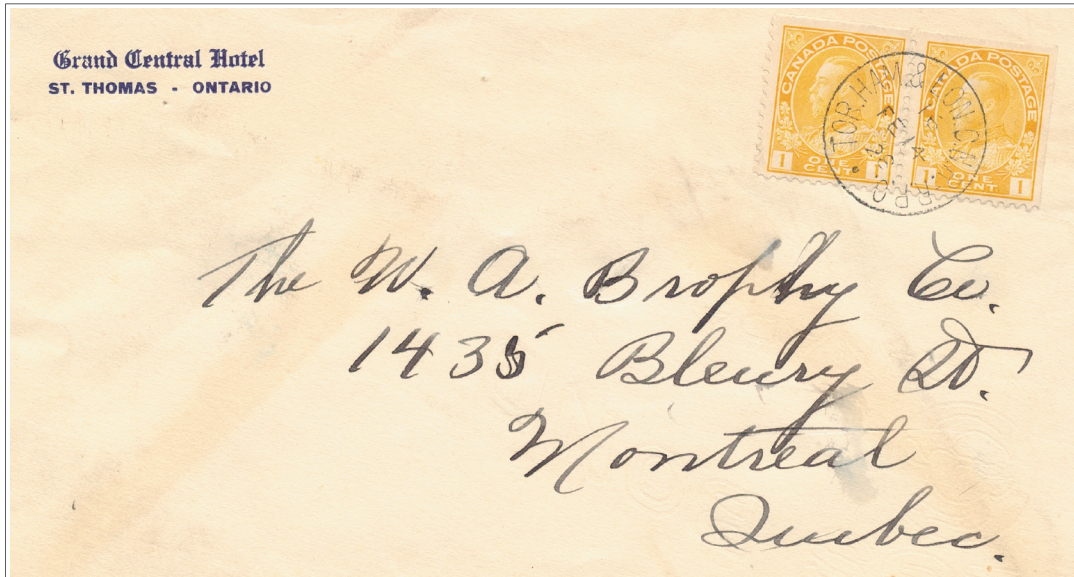 Grand Central Hotel
ST. THOMAS - ONTARIO
CANADA POSTAGE
1 ONE CENT 1
CANADA POSTAGE
1 ONE CENT 1
TOR. HAM. & LON.
R.P.O.
The W. A. Brophy Co.
1435 Bleury St.
Montreal
Quebec.